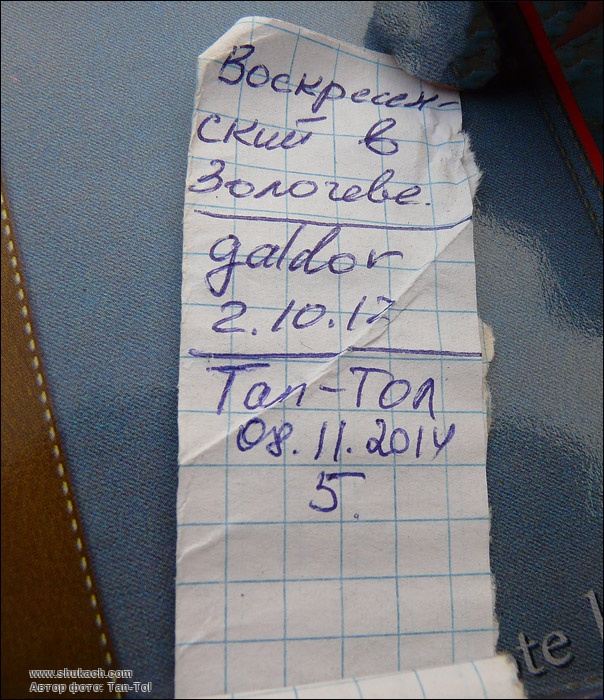 Воскресен-
ский в
Золочеве.
galdor
2.10.12
Тап-Тол
08.11.2014
5.
ote
www.shukach.com
Автор фото: Tan-Tol